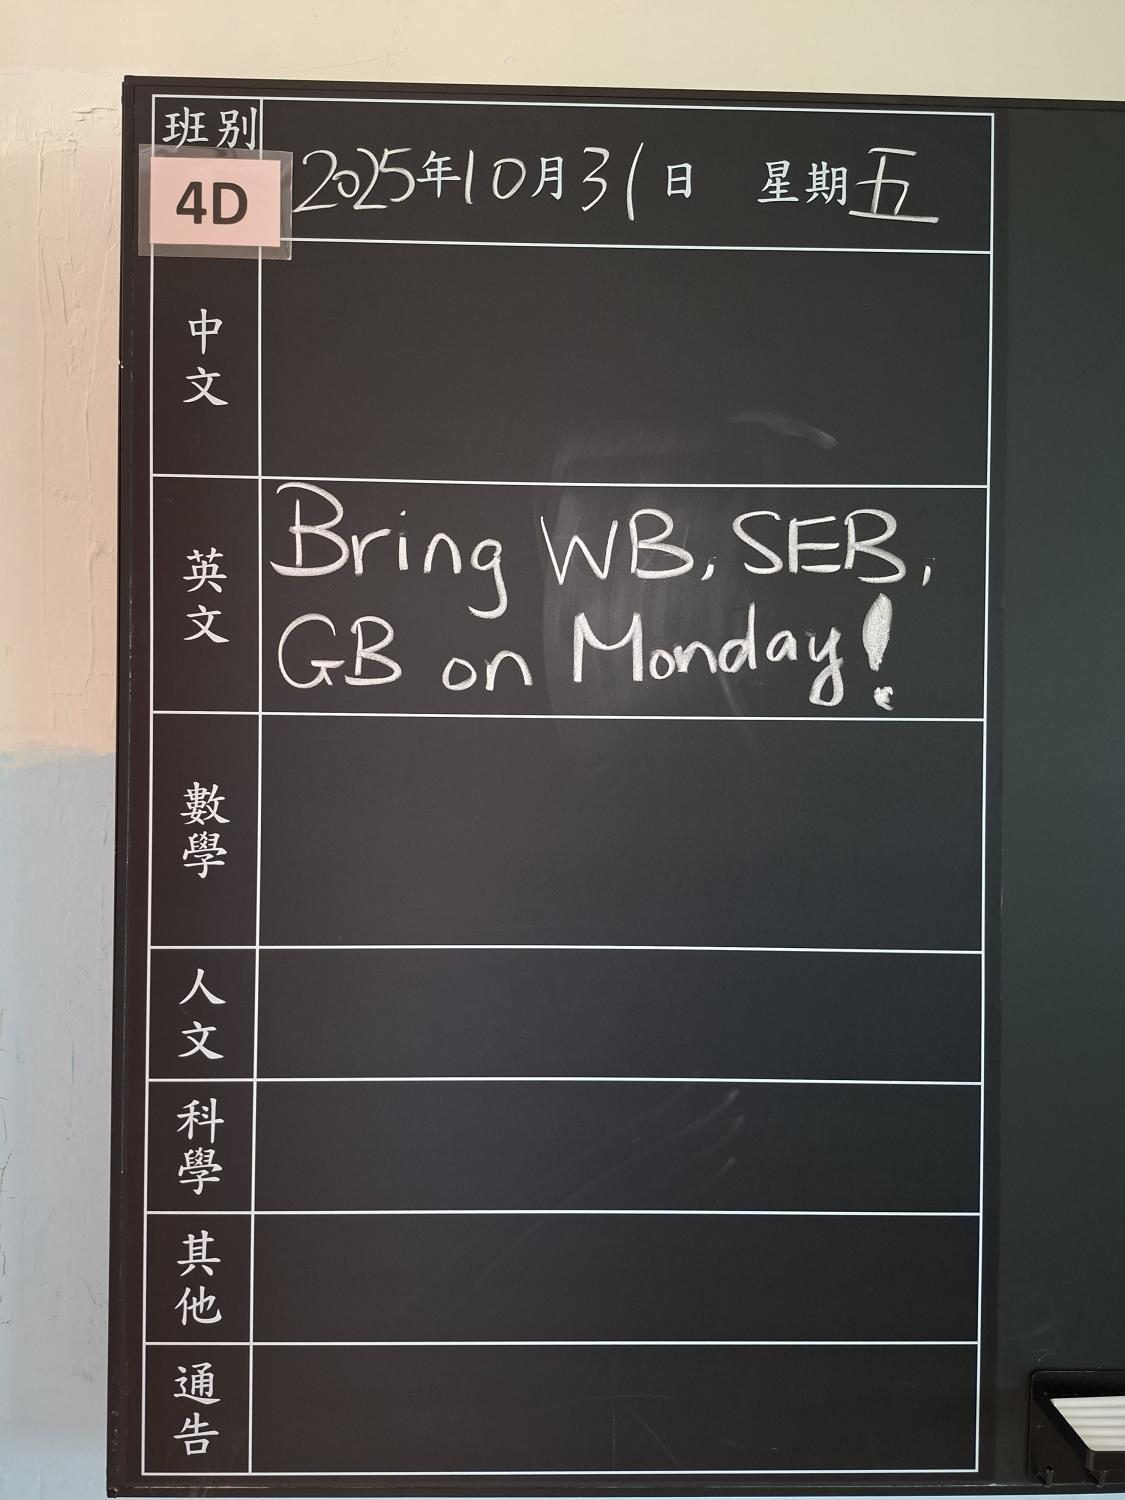 班別
4D
2025年10月31日 星期五
中文
英文
Bring WB, SEB,
GB on Monday!
數學
人文
科學
其他
通告